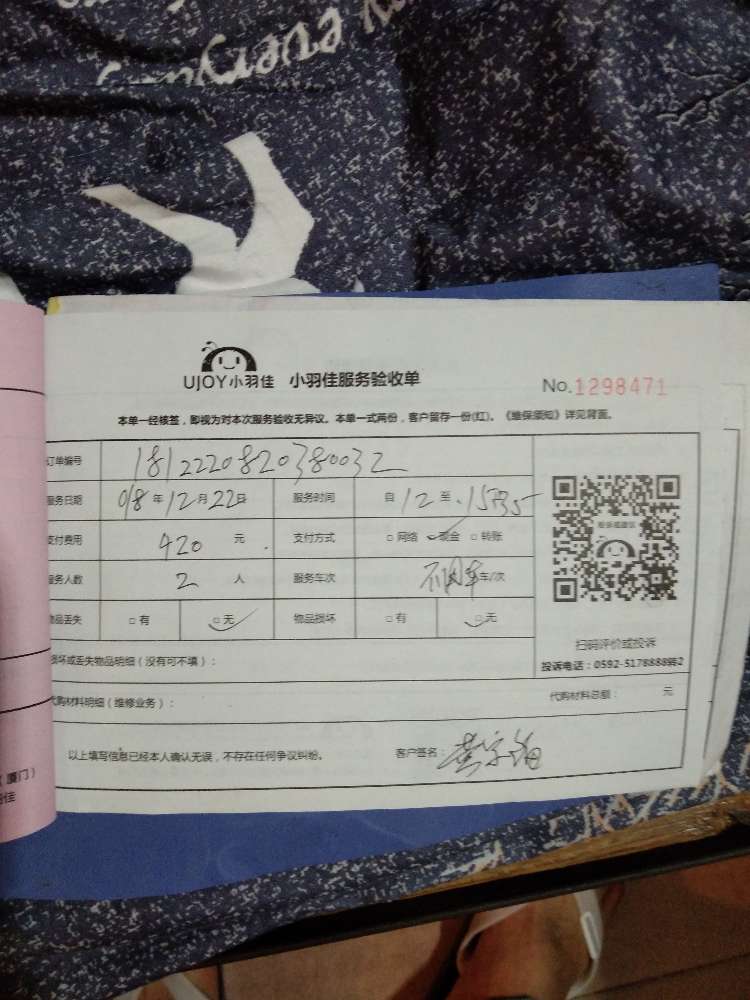 everyday
UJOY小羽佳 小羽佳服务验收单 No.1298471
本单一经核签，即视为对本次服务验收无异议。本单一式两份，客户留存一份(红)。《维保须知》详见背面。
订单编号 1812220820380032
服务日期 018年12月22日 服务时间 自12至
支付费用 420元 支付方式 □网络 现金 □转账
服务人数 2人 服务车次 不用车车/次
物品丢失 □有 □无 物品损坏 □有 □无
扫码评价或投诉
损坏或丢失物品明细（没有可不填）： 投诉电话：0592-5178888转2
代购材料明细（维修业务）： 代购材料总额： 元
以上填写信息已经本人确认无误，不存在任何争议纠纷。 客户签名：
（厦门）
佳